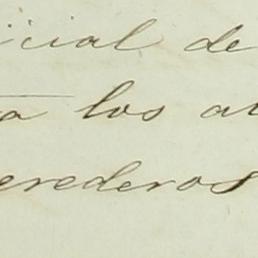 icial de
a los a
erederos